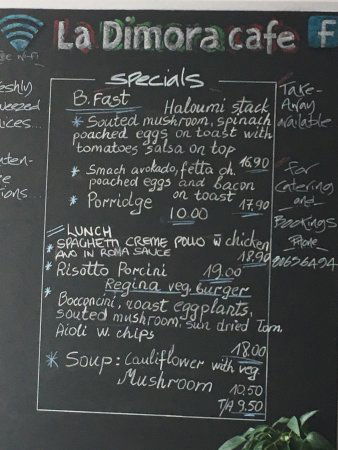 La Dimora cafe f
wi-fi
specials
B. Fast
Haloumi stack
* Souted mushroom, spinach
poached eggs on toast with
tomatoes salsa on top
16,90
* Smach avokado, fetta ch.
poached eggs and bacon
on toast
* Porridge 17,90
10.00
LUNCH
* SPAGHETTI CREME POLLO w chicken
AVO IN ROMA SAUCE 18,90
* Risotto Porcini 19.00
* Regina veg, burger
Bocconcini, roast eggplants,
souted mushroom, sun dried Tom,
Aioli w. chips
18.00
* Soup: Cauliflower with veg
Mushroom 10,50
T/A 9.50
Take-
Away
available
For
Catering
and
Bookings
Phone